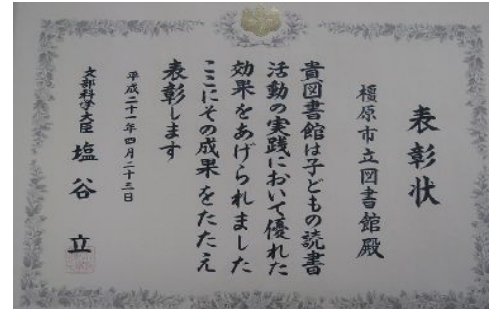 表彰状
橿原市立図書館殿
貴図書館は子どもの読書
活動の実践において優れた
効果をあげられました
ここにその成果をたたえ
表彰します
平成二十一年四月二十三日
文部科学大臣 塩谷 立